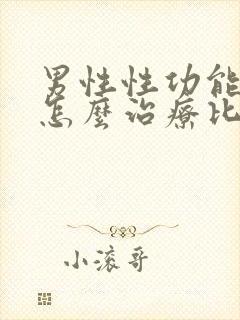 男性性功能
怎麼治療比
小滾哥